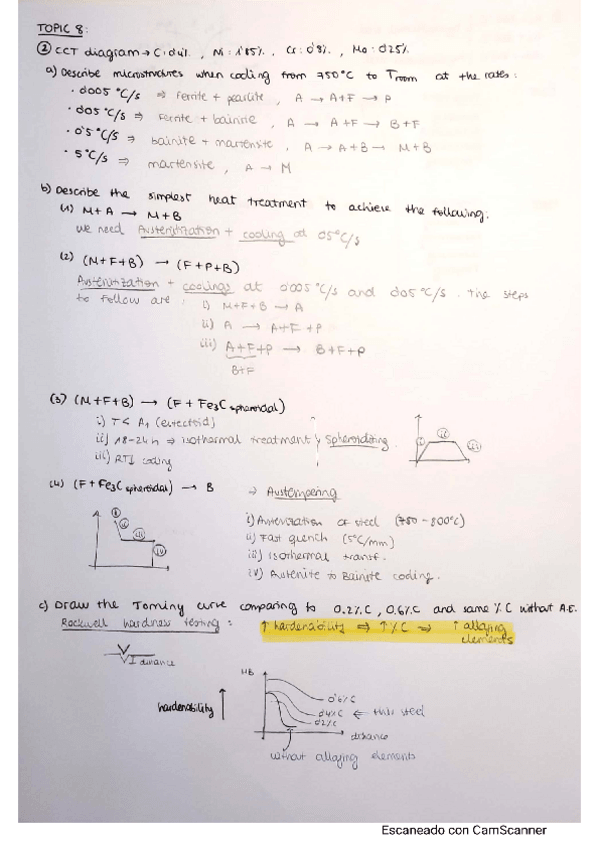 TOPIC 8:
② CCT diagram → C: 0'4%, Ni: 1'85%, Cr: 0'8%, Mo: 0'25%
a) Describe microstructures when cooling from 750°C to Troom at the rates:
· 0'005 °C/s ⇒ ferrite + pearlite, A → A+F → P
· 0'05 °C/s ⇒ ferrite + bainite, A → A+F → B+F
· 0'5 °C/s ⇒ bainite + martensite, A → A+B → M+B
· 5 °C/s ⇒ martensite, A → M
b) Describe the simplest heat treatment to achieve the following.
(1) M+A → M+B
We need Austenitization + cooling at 0'5°C/s
(2) (M+F+B) → (F+P+B)
Austenitization + coolings at 0'005 °C/s and 0'05 °C/s. The steps
to follow are: i) M+F+B → A
ii) A → A+F+P
iii) A+F+P → B+F+P
B+F
(3) (M+F+B) → (F + Fe3C spheroidal)
i) T < A1 (eutectoid)
ii) 18-24h ⇒ isothermal treatment Spheroidizing.
iii) RTI cooling
i) ii) iii)
(4) (F + Fe3C spheroidal) → B ⇒ Austempering
i) ii) iii) iv)
i) Austenization of steel (750-800°C)
ii) Fast quench (5°C/mm)
iii) Isothermal transf.
iv) Austenite to Bainite cooling.
c) Draw the Jominy curve comparing to 0.2%C, 0.6%C and same %C without A.E.
Rockwell hardness testing: ↑ hardenability ⇒ ↑ %C ⇒ ↑ alloying
elements
I distance
HB
hardenability ↑
0'6%C
0'4%C ← this steel
0'2%C
distance
without alloying elements
Escaneado con CamScanner